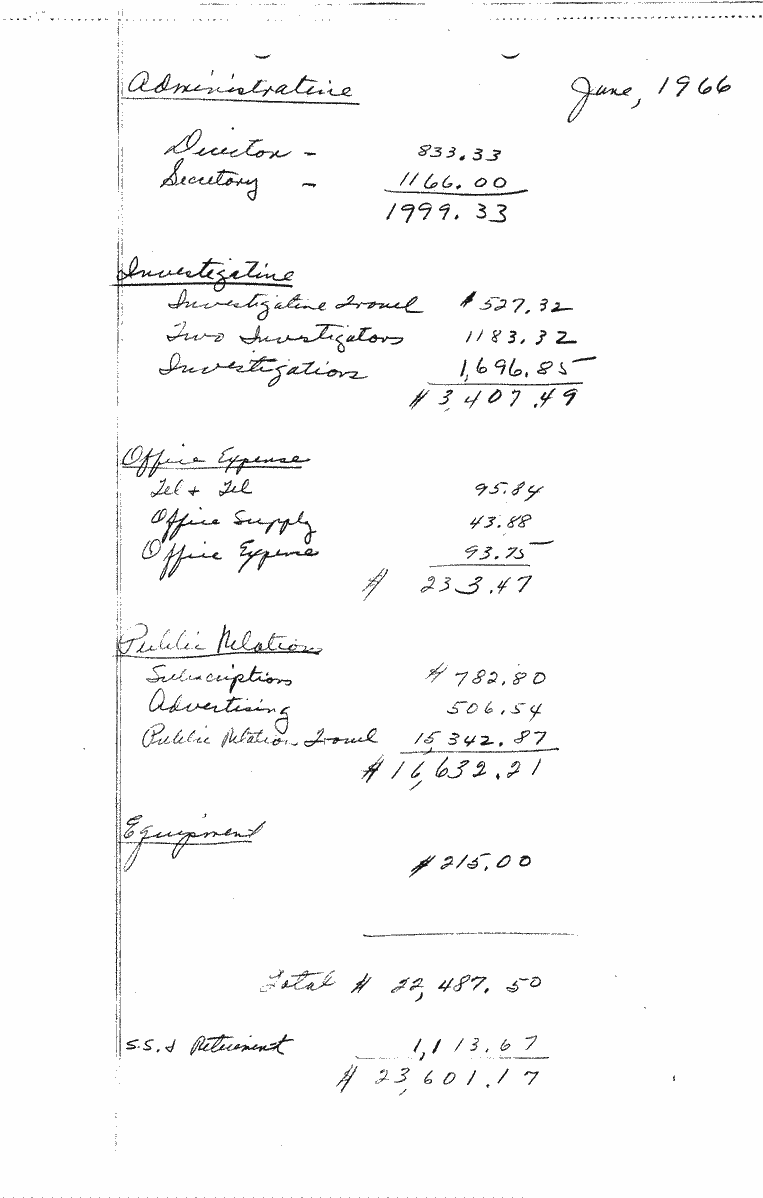 Administrative June, 1966
Director - 833.33
Secretary - 1166.00
1999.33
Investigative
Investigative Travel $527.32
Two Investigators 1183.32
Investigations 1,696.85
$3,407.49
Office Expense
Tel & Tel 95.84
Office Supply 43.88
Office Expense 93.75
$ 233.47
Public Relations
Subscriptions $782.80
Advertising 506.54
Public Relation Travel 15,342.87
$16,632.21
Equipment
$215.00
Total $ 22,487.50
S.S. & Retirement 1,113.67
$ 23,601.17